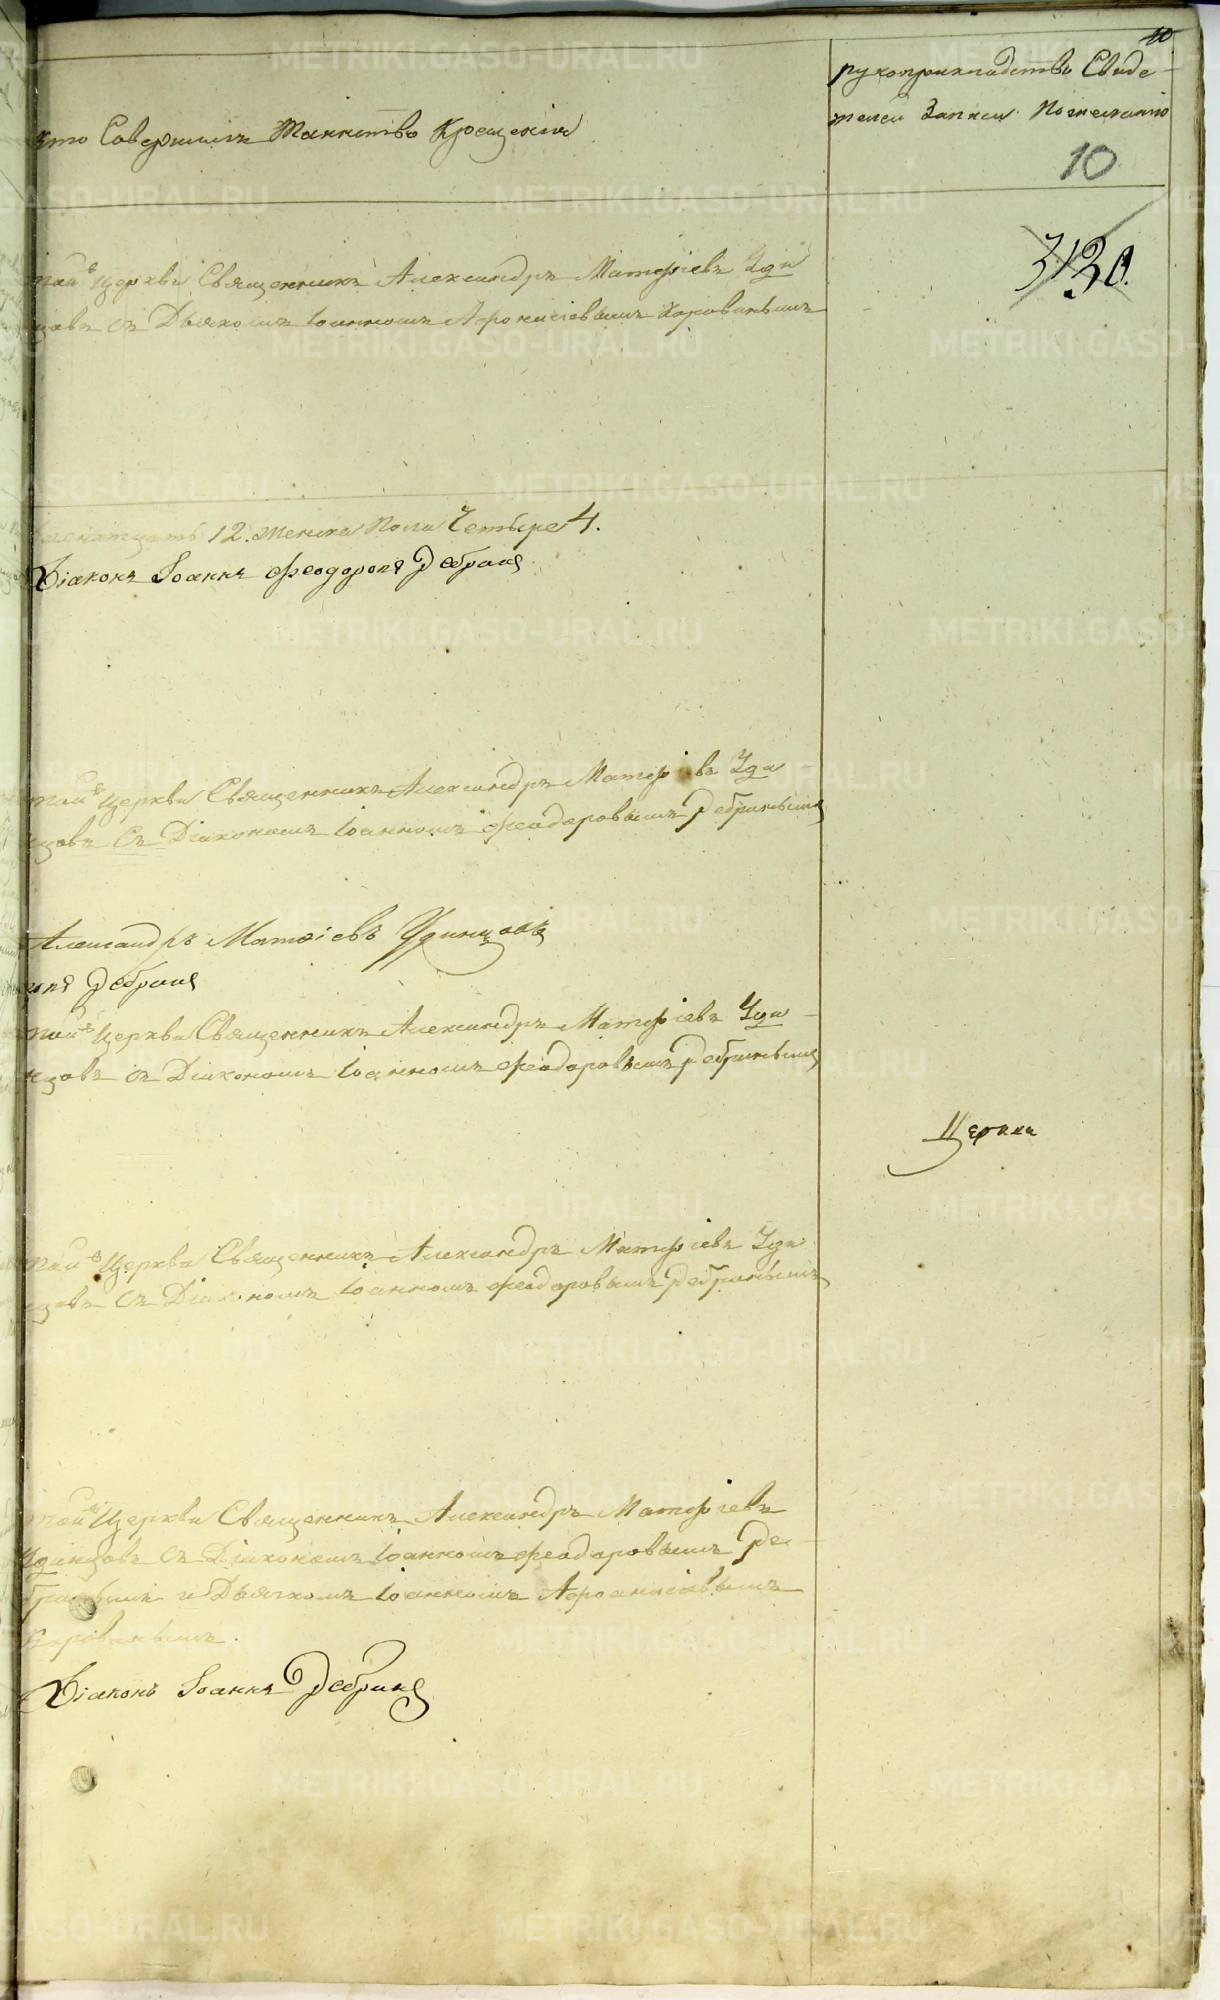 10
рукоприкладство Свиде-
телей Записи По желанию
Кто Совершилъ Таинство Крещенія
10
3/30.
той ѣ Церкви Священникъ Александръ Матфіевъ Уди
цовъ съ Дьячкомъ Іоанномъ Афонасіевымъ Коровинымъ
12. женска пола Четыре 4.
Діаконъ Іоаннъ Феодоровъ Дебринъ
той ѣ Церкви Священникъ Александръ Матфіевъ Уди-
нцовъ Съ Діакономъ Іоанномъ Феодоровымъ Дебринымъ
Александръ Матѳіевъ Удинцовъ
Дебринъ
той ѣ Церкви Священникъ Александръ Матфіевъ Уди-
нцовъ съ Діакономъ Іоанномъ Феодоровымъ Дебринымъ
Церкви
той ѣ Церкви Священникъ Александръ Матфіевъ Уди
нцовъ Съ Діакономъ Іоанномъ Феодоровымъ Дебринымъ
той Церкви Священникъ Александръ Матфіевъ
Удинцовъ съ Діакономъ Іоанномъ Феодоровымъ Де-
бринымъ и Дьячкомъ Іоанномъ Афонасіевымъ
Коровинымъ.
Діаконъ Іоаннъ Дебринъ
METRIKI.GASO-URAL.RU